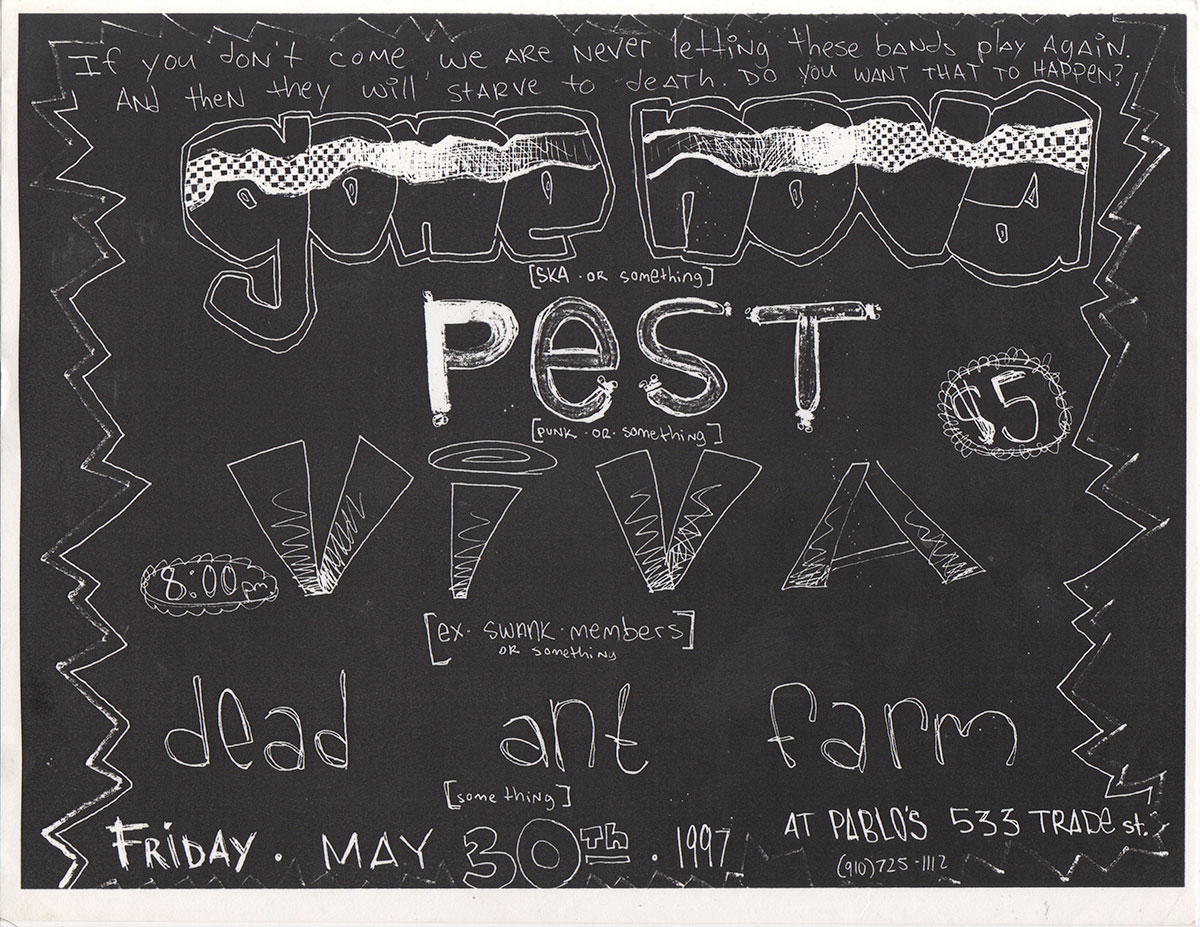 If you don't come, we ARE never letting these bands play AGAIN.
AND then they will STARVE to deAth. DO YOU WANT THAT TO HAPPEN?
gone nova
[SKA · OR something]
PeST
[PUNK · OR · something]
$5
ViVA
8:00 pm.
[ex · SWANK · members]
OR something
dead ant farm
[something]
FRiDAY · MAY 30Th · 1997
AT PABLO'S 533 TRADe st.
(910) 725-1112